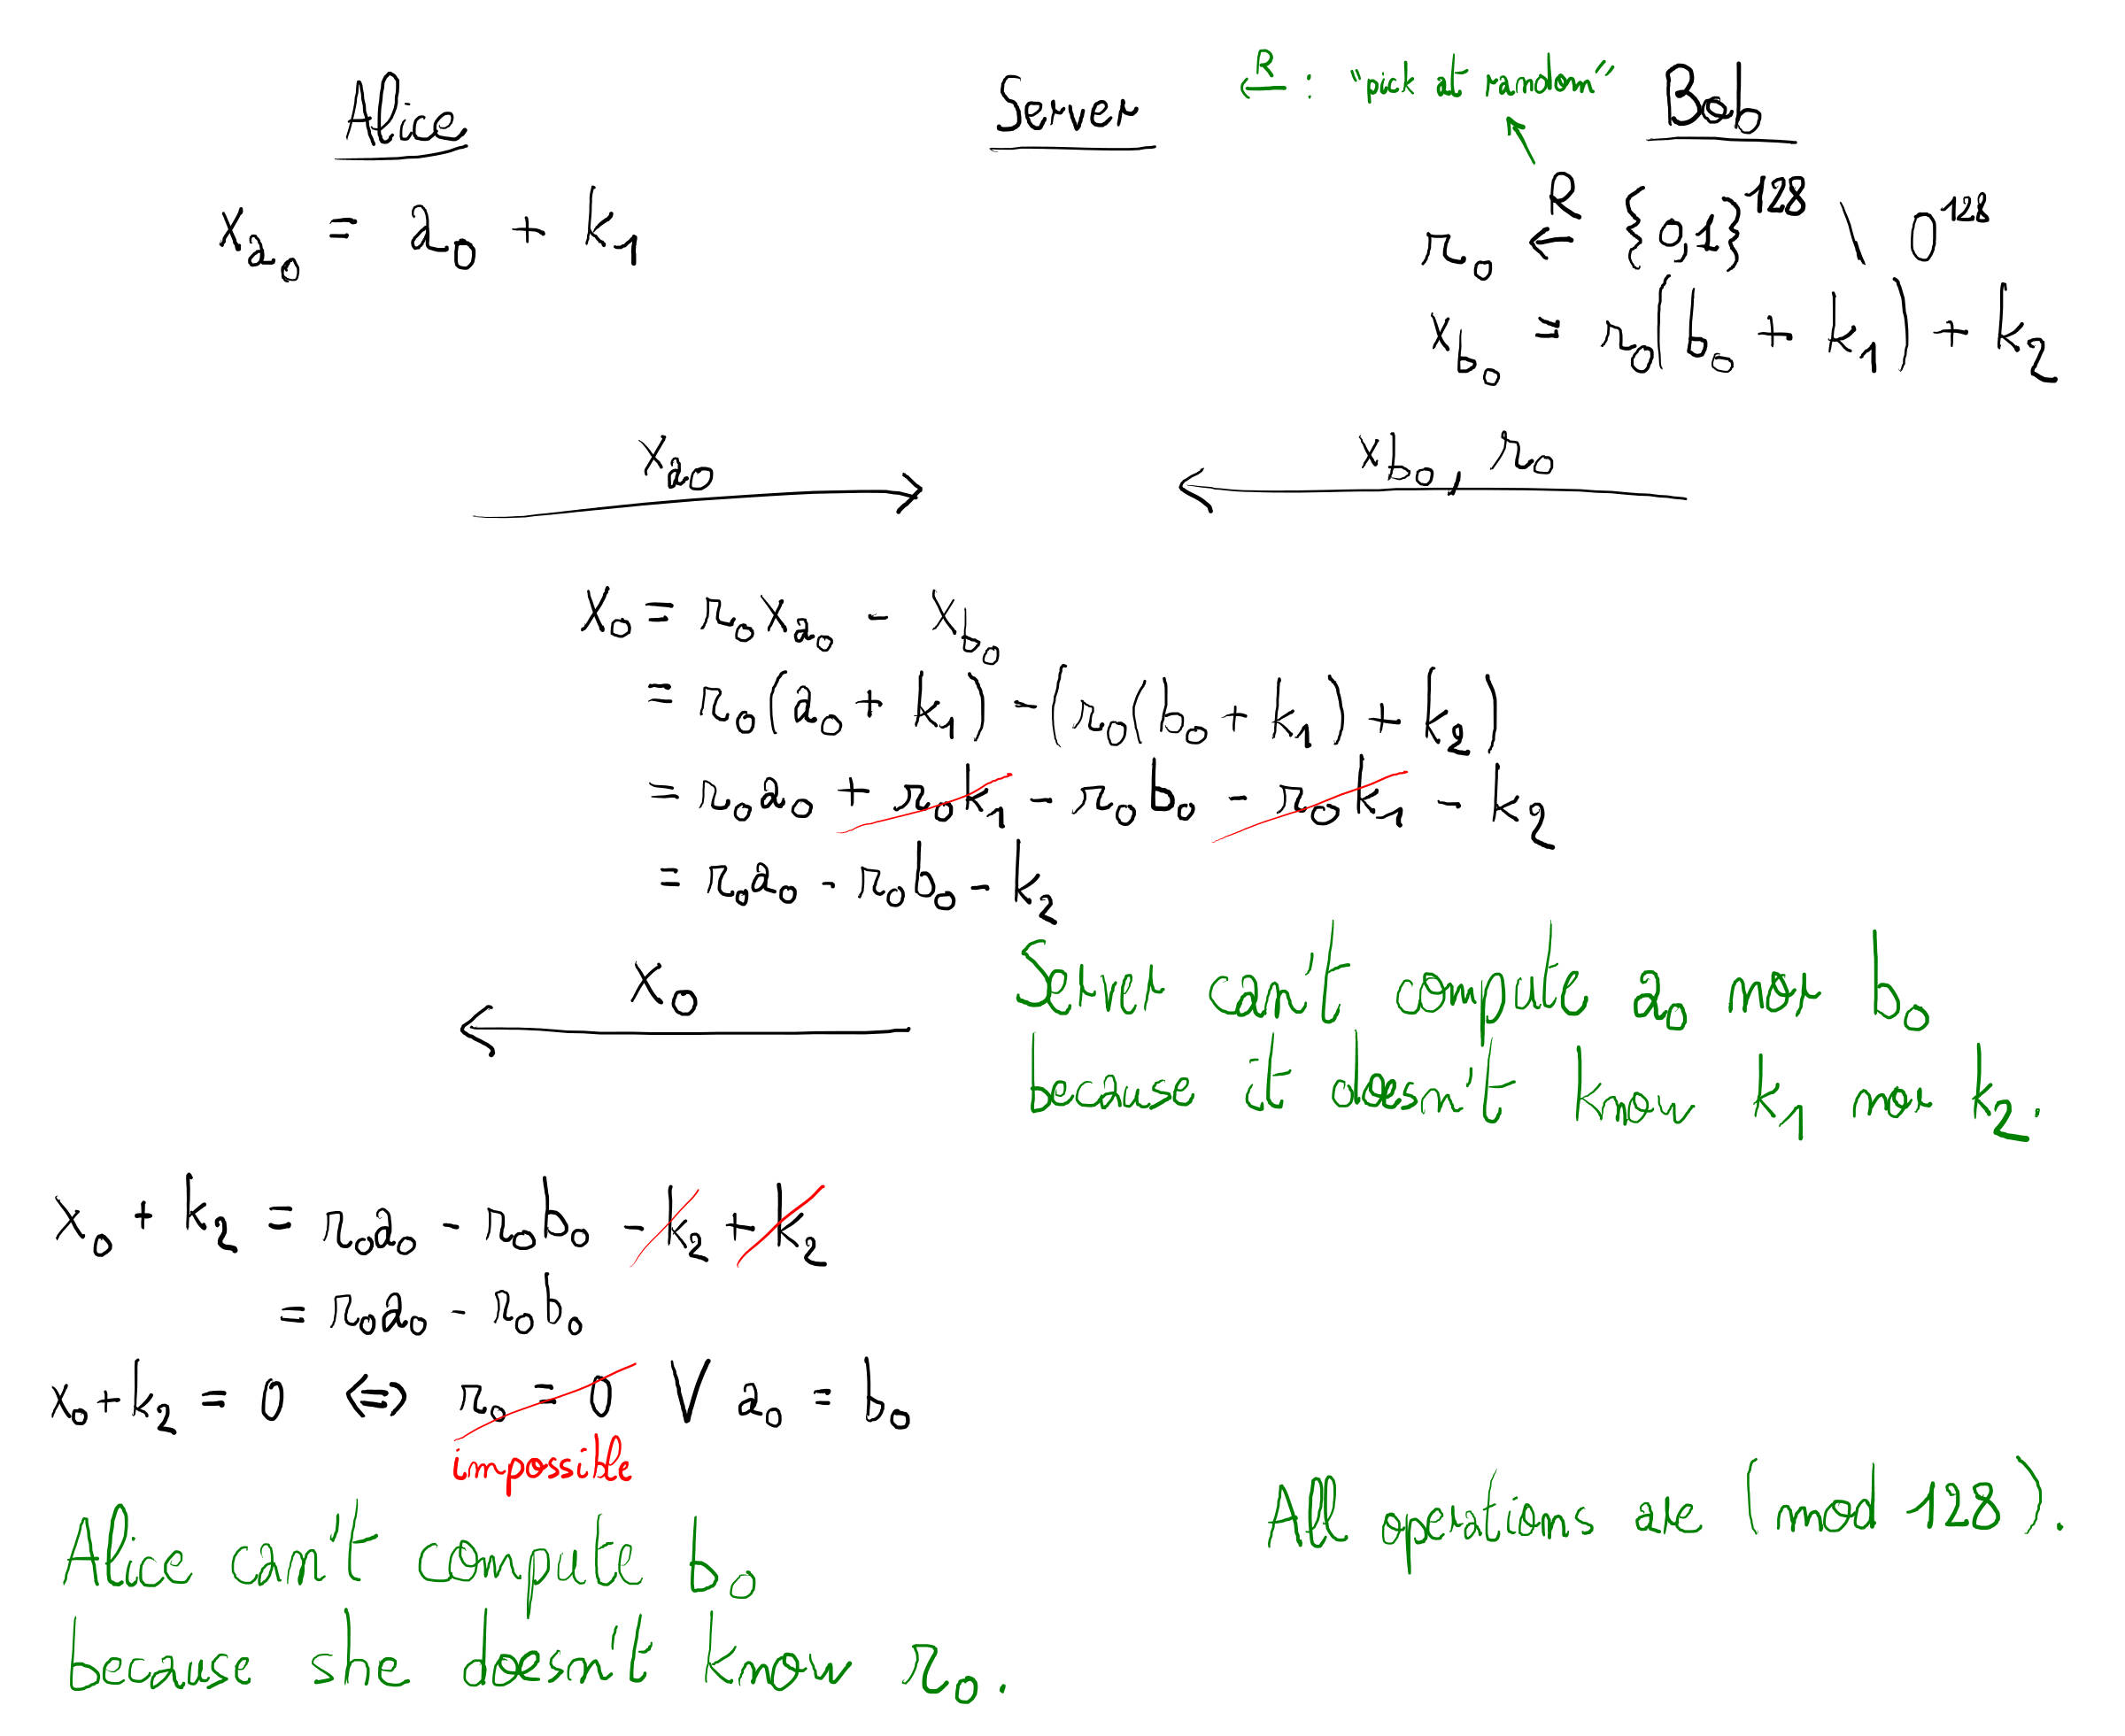 Alice
Server
←ᴿ : "pick at random"
Bob
xₐ₀ = a₀ + k₁
r₀ ←ᴿ {0,1}¹²⁸ \ 0¹²⁸
x_b₀ = r₀(b₀ + k₁) + k₂
xₐ₀
x_b₀, r₀
x₀ = r₀xₐ₀ - x_b₀
= r₀(a₀ + k₁) - (r₀(b₀ + k₁) + k₂)
= r₀a₀ + r₀k₁ - r₀b₀ - r₀k₁ - k₂
= r₀a₀ - r₀b₀ - k₂
x₀
Server can't compute a₀ nor b₀
because it doesn't know k₁ nor k₂.
x₀ + k₂ = r₀a₀ - r₀b₀ - k₂ + k₂
= r₀a₀ - r₀b₀
x₀+k₂ = 0 ⇔ r₀ = 0 ∨ a₀ = b₀
impossible
Alice can't compute b₀
because she doesn't know r₀.
All operations are (mod 128).